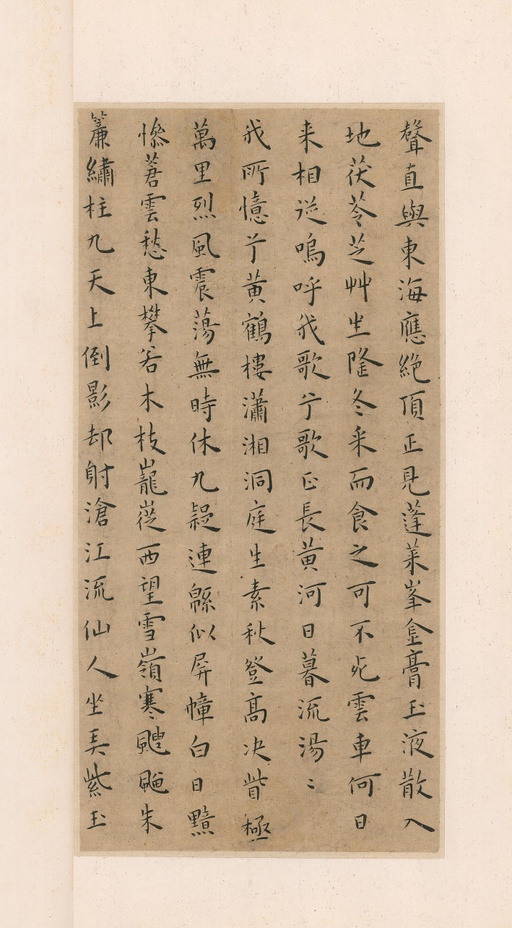 聲直與東海應絕頂正見蓬萊峯金膏玉液散入
地茯苓芝艸坐隆冬采而食之可不死雲車何日
来相從嗚呼我歌兮歌正長黃河日暮流湯〻
我所憶兮黃鶴樓瀟湘洞庭生素秋登高决眥極
萬里烈風震蕩無時休九疑連緜似屏幛白日黯
慘蒼雲愁東攀若木枝巃嵸西望雪嶺寒颼飀朱
簾繡柱九天上倒影却射滄江流仙人坐弄紫玉